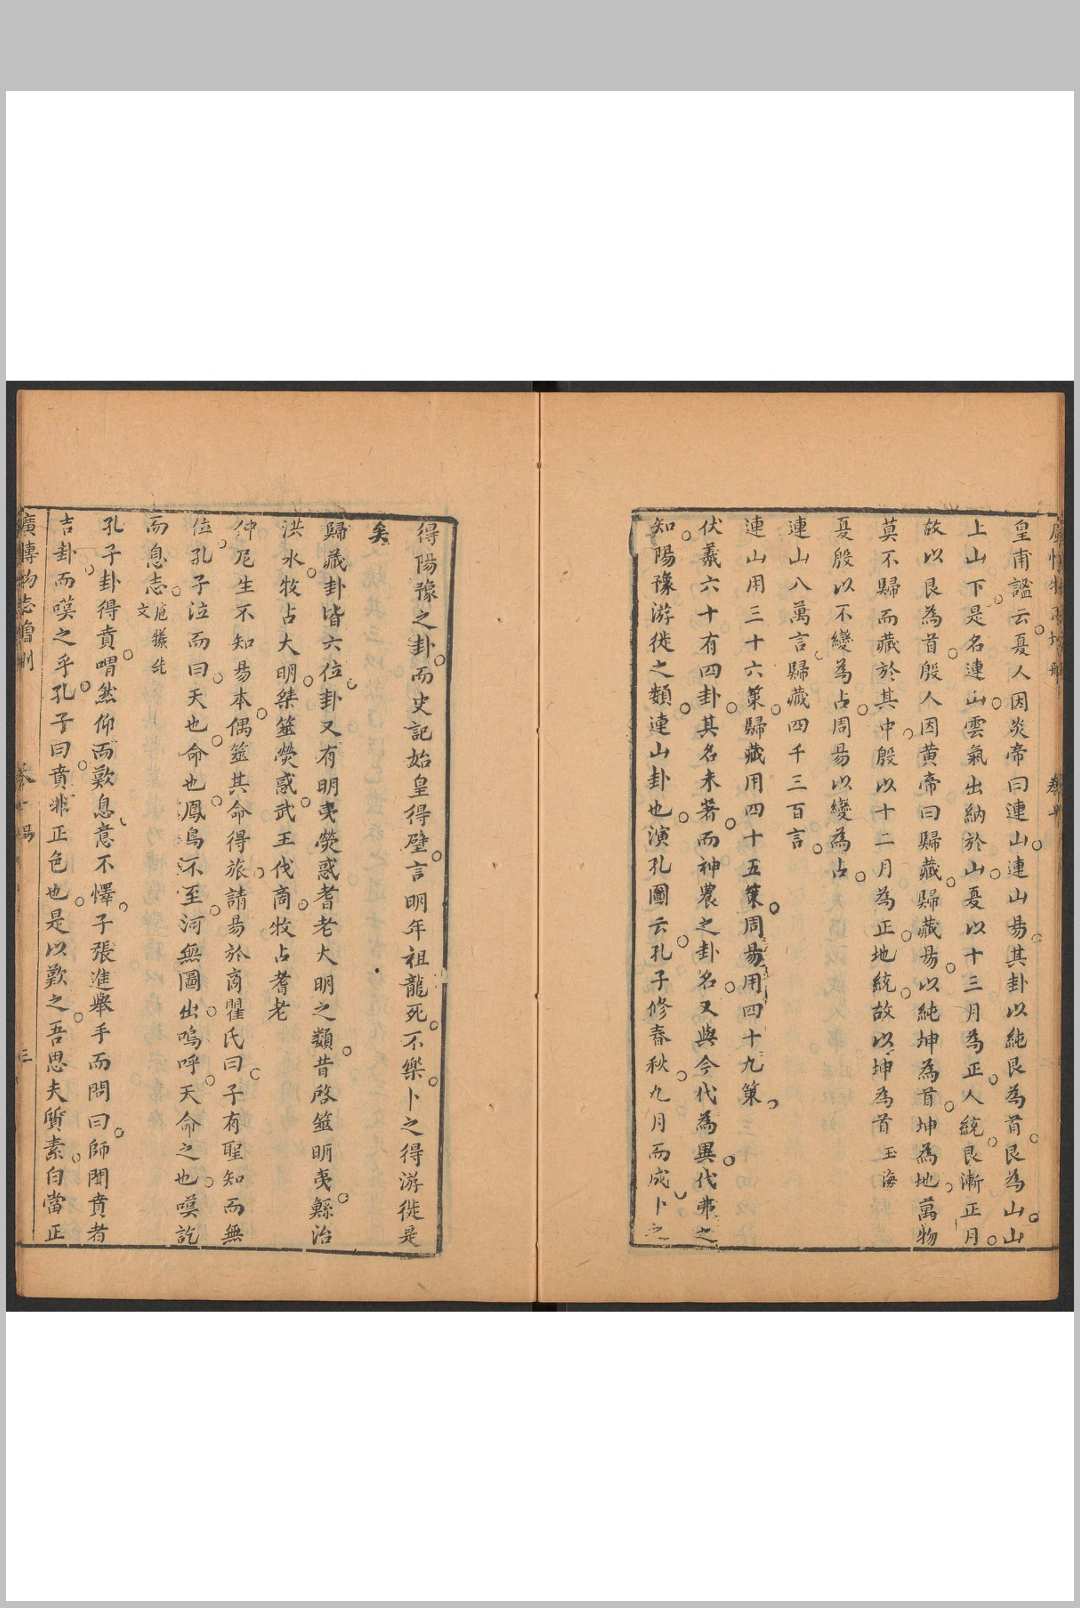 皇甫謐云夏人因炎帝曰連山連山易其卦以純艮為首艮為山山
上山下是名連山雲氣出納於山夏以十三月為正人統艮漸正月
故以艮為首殷人因黄帝曰歸藏歸藏易以純坤為首坤為地萬物
莫不歸而藏於其中殷以十二月為正地統故以坤為首玉海
夏殷以不變為占周易以變為占
連山八萬言歸藏四千三百言
連山用三十六策歸藏用四十五策周易用四十九策
伏羲六十有四卦其名未著而神農之卦名又與今代為異代弗之
知陽豫游徙之類連山卦也演孔圖云孔子修春秋九月而成卜之
得陽豫之卦而史記始皇得壁言明年祖龍死不樂卜之得游徙是
矣
歸藏卦皆六位卦又有明夷熒惑耆老大明之類昔啓筮明夷鯀治
洪水牧占大明桀筮熒惑武王伐商牧占耆老
仲尼生不知易本偶筮其命得旅請易於商瞿氏曰子有聖知而無
位孔子泣而曰天也命也鳳鳥不至河無圖出嗚呼天命之也嘆訖
而息志
孔子卦得賁喟然仰而歎息意不懌子張進舉手而問曰師聞賁者
吉卦而嘆之乎孔子曰賁非正色也是以歎之吾思夫質素白當正
廣博物志
卷十
三